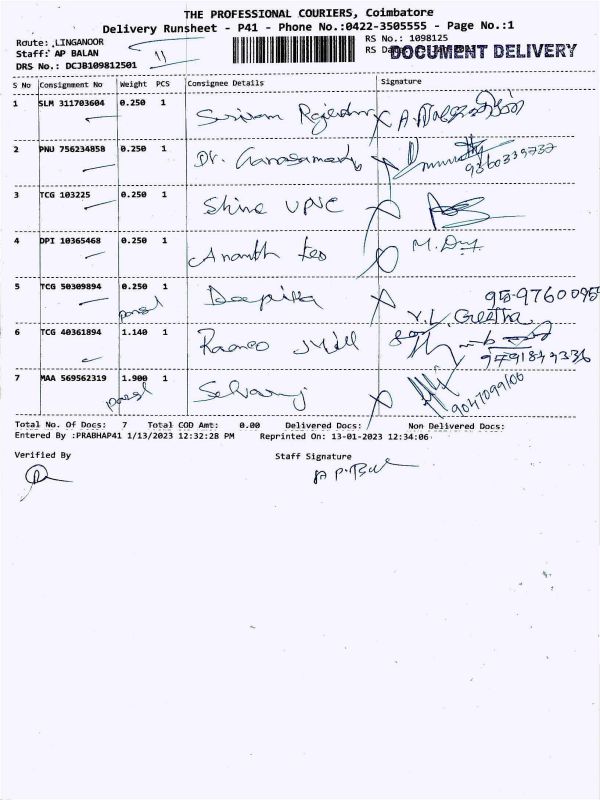 THE PROFESSIONAL COURIERS, Coimbatore
Delivery Runsheet - P41 - Phone No.:0422-3505555 - Page No.:1
Route: LINGANOOR
RS No.: 1098125
Staff: AP BALAN
11
RS
DOCUMENT DELIVERY
DRS No.: DCJB109812501
S No Consignment No Weight PCS Consignee Details Signature
1 SLM 311703604 0.250 1
2 PNU 756234858 0.250 1 Dr.
9360339737
3 TCG 103225 0.250 1 Shine UPVC
4 DPI 10365468 0.250 1 Ananth
5 TCG 50309894 0.250 1 Deepika
Y.L. Geetha
6 TCG 40361894 1.140 1
7 MAA 569562319 1.900 1 Selvaraj
Total No. Of Docs: 7 Total COD Amt: 0.00 Delivered Docs: Non Delivered Docs:
Entered By :PRABHAP41 1/13/2023 12:32:28 PM Reprinted On: 13-01-2023 12:34:06
Verified By
Staff Signature